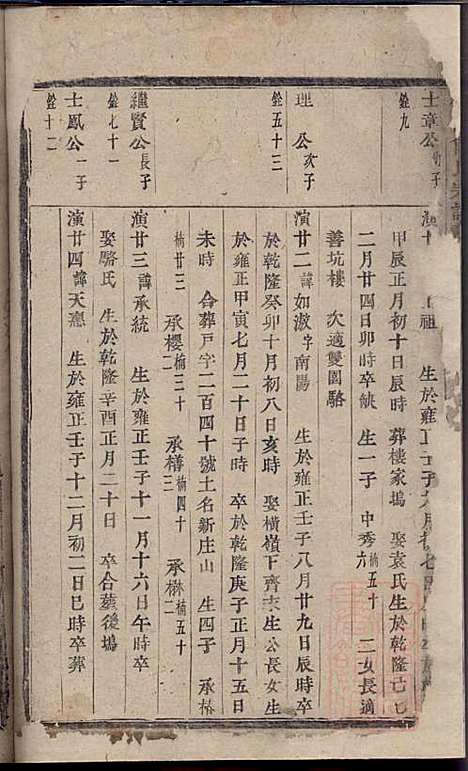 士章公
銓九
演廿 祖 生於雍正壬子 月
甲辰正月初十日辰時 葬樓家塢 娶袁氏生於乾隆己
二月廿四日卯時卒缺 生一子 中秀楠五十六 二女長適
善坑樓 次適雙園駱
理公次子
銓五十三
演廿二諱如淑字南陽 生於雍正壬子八月廿九日辰時卒
於乾隆癸卯十月初八日亥時 娶橫嶺下齊 生公長女生
於雍正甲寅七月二十日子時 卒於乾隆庚子正月十五日
未時 合葬戸字二百四十號土名新庄山 生四子 承椿
楠廿三 承櫻楠三十二 承橏楠四十 承楙楠五十二
繼賢公長子
銓七十一
演廿三諱承統 生於雍正壬子十一月十六日午時卒
娶駱氏 生於乾隆辛酉正月二十日 卒合葬後塢
士鳳公一子
銓十二
演廿四諱天 生於雍正壬子十二月初二日巳時卒葬